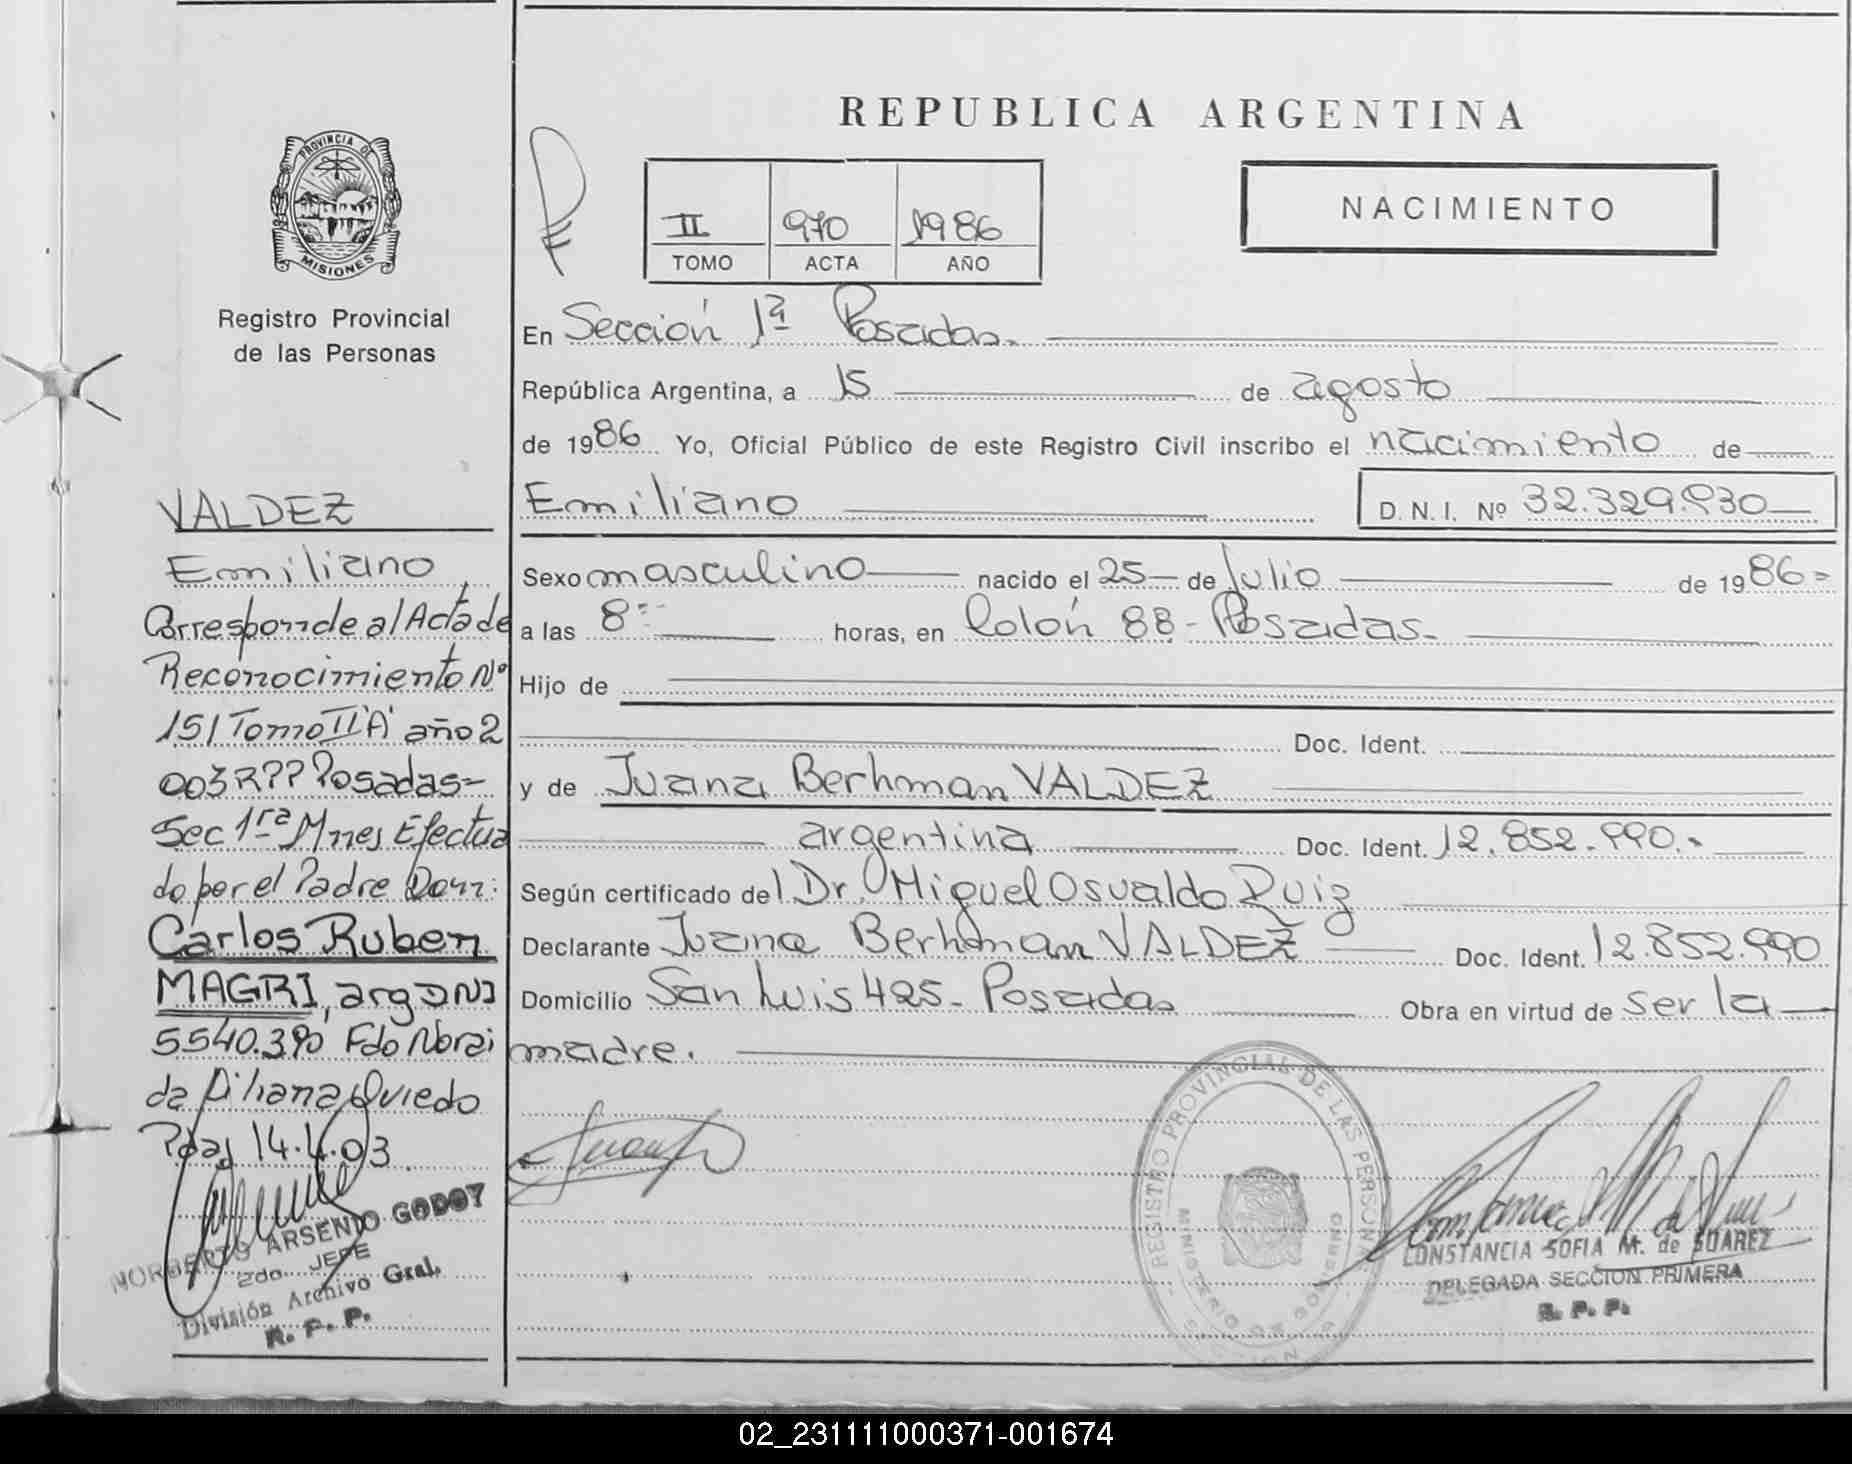 REPUBLICA ARGENTINA
PROVINCIA DE
MISIONES
Registro Provincial
de las Personas
II 970 1986
TOMO ACTA AÑO
NACIMIENTO
En Sección 1ª Posadas.
República Argentina, a 15 de agosto
de 1986 Yo, Oficial Público de este Registro Civil inscribo el nacimiento de
Emiliano D. N. I. Nº 32.329.930
Sexo masculino nacido el 25 de Julio de 1986=
a las 8 horas, en Colón 88 - Posadas.
Hijo de
Doc. Ident.
y de Juana Berhman VALDEZ
argentina Doc. Ident. 12.852.990.-
Según certificado del Dr. Miguel Osvaldo Ruiz
Declarante Juana Berhman VALDEZ Doc. Ident. 12.852.990
Domicilio San Luis 425 - Posadas Obra en virtud de ser la
madre.
VALDEZ
Emiliano
Corresponde al Acta de
Reconocimiento Nº
151 Tomo II'A' año 2
003 R?? Posadas-
Sec 1ra Mnes Efectua
do por el Padre Don:
Carlos Ruben
MAGRI, arg DNI
5540.390 Fdo Norai
da Liliana Oviedo
Pdas 14.4.03
NORBERTO ARSENIO GODOY
2do. JEFE
División Archivo Gral.
R. P. P.
REGISTRO PROVINCIAL DE LAS PERSONAS
MINISTERIO DE GOBIERNO
CONSTANCIA SOFIA M. de SUAREZ
DELEGADA SECCION PRIMERA
R. P. P.
02_231111000371-001674